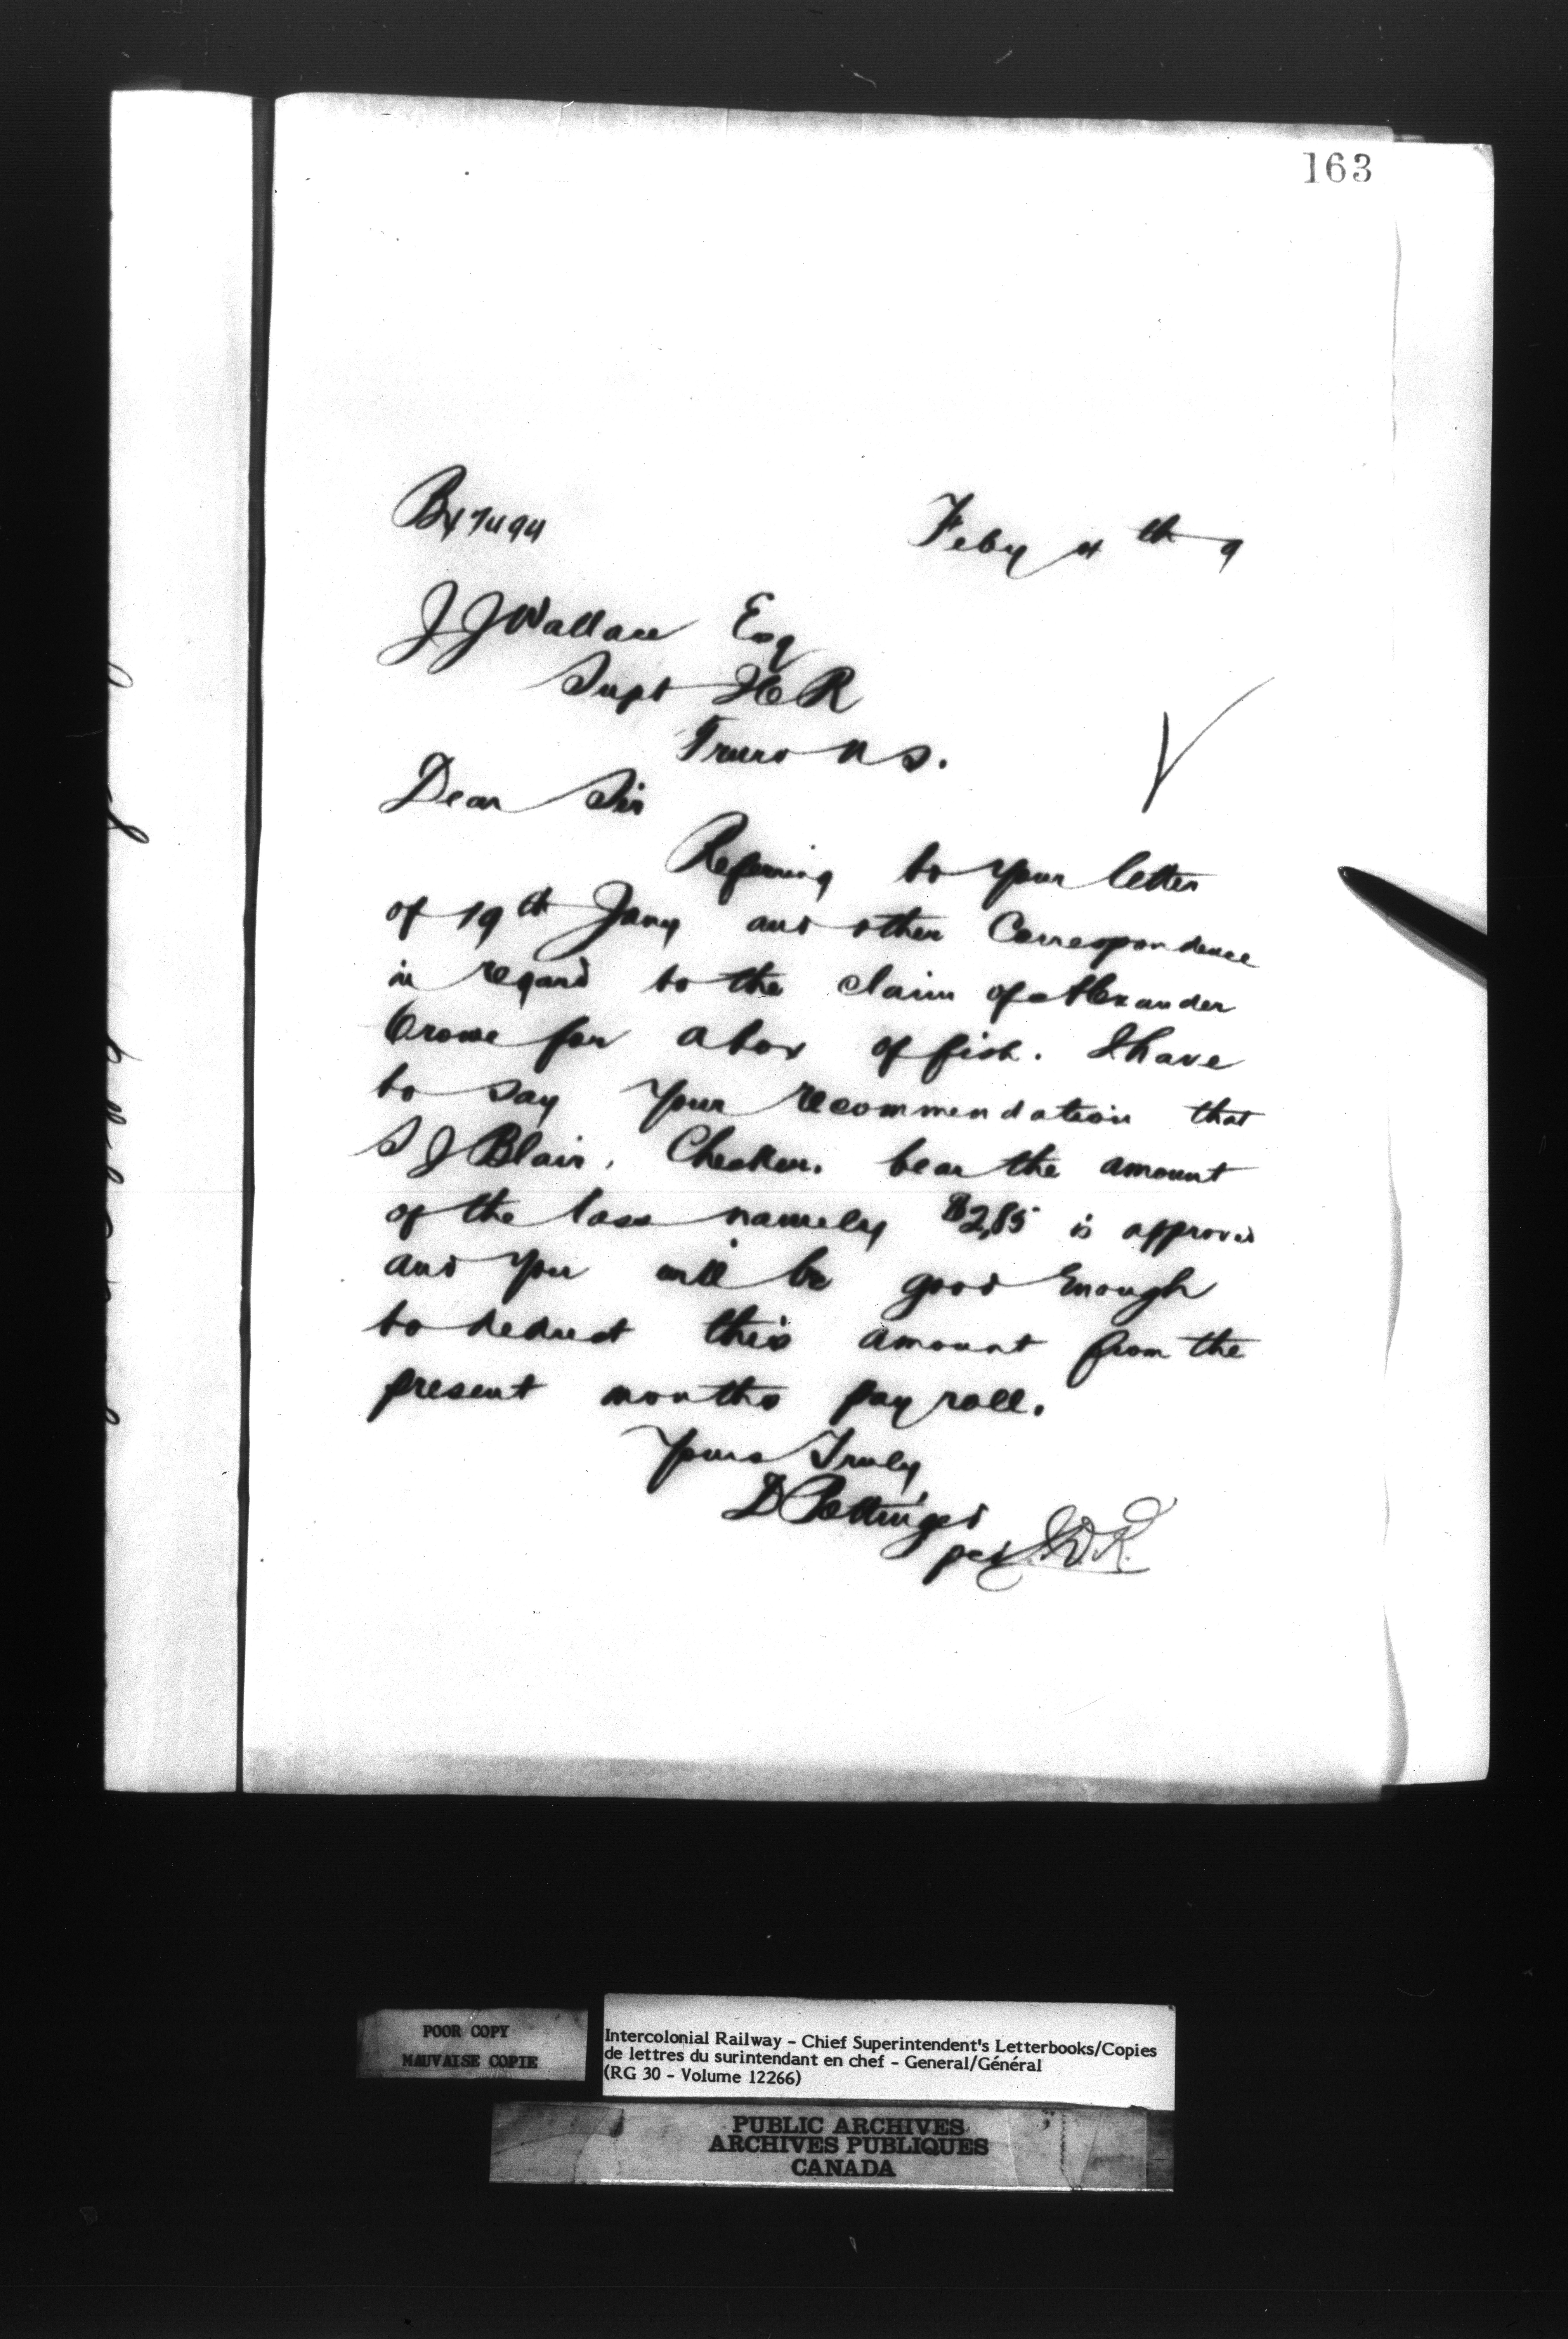 163
Bx7494
Feby 4th 9
J J Wallace Esq
Supt I C R
Truro N S.
Dear Sir
Referring to your letter
of 19th Jany and other Correspondence
in regard to the claim of Alexander
Crowe for a box of fish. I have
to say your recommendation that
S J Blair, Checker. bear the amount
of the loss namely $2.85 is approved
and you will be good enough
to deduct this amount from the
present months pay roll.
Yours Truly,
D Pottinger
per
POOR COPY
MAUVAISE COPIE
Intercolonial Railway - Chief Superintendent's Letterbooks/Copies
de lettres du surintendant en chef - General/Général
(RG 30 - Volume 12266)
PUBLIC ARCHIVES
ARCHIVES PUBLIQUES
CANADA